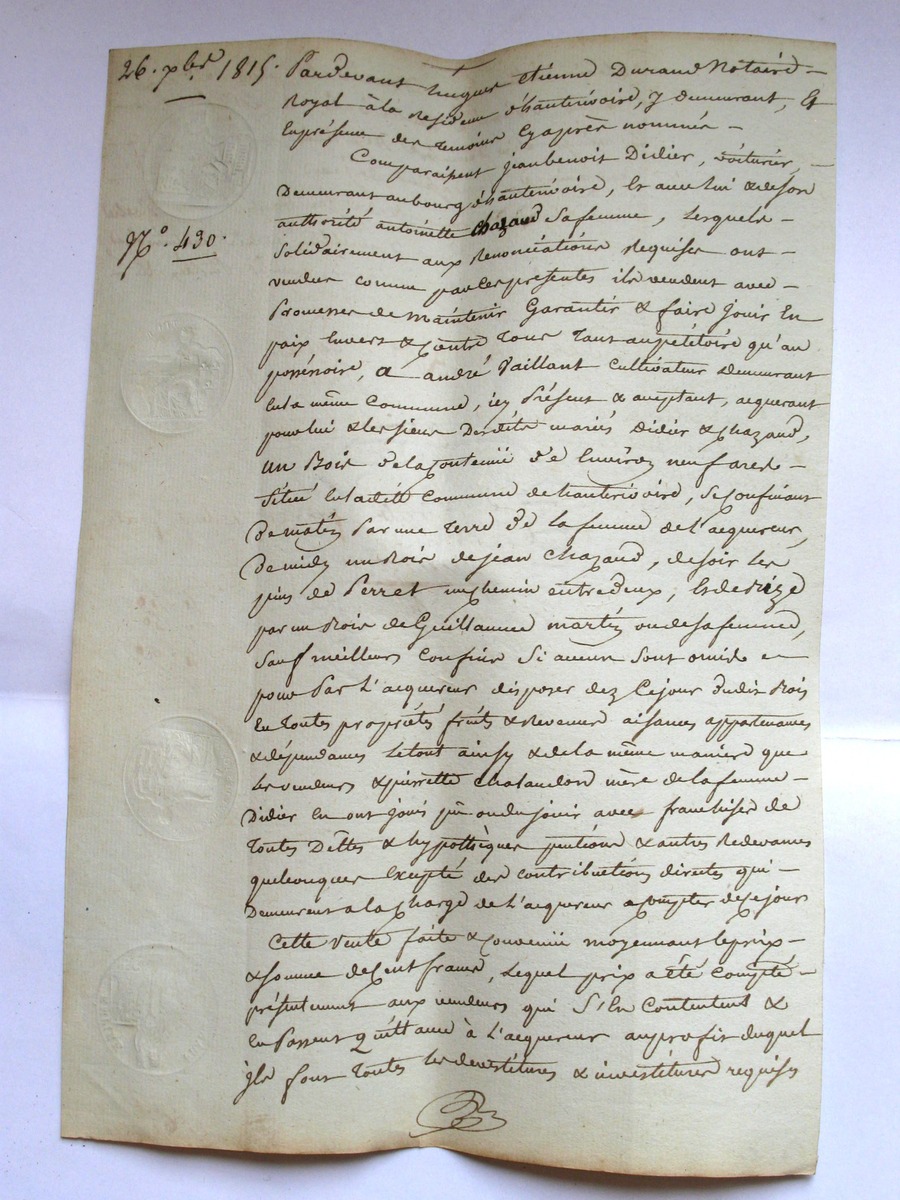 26. xbre 1815.
N.° 430.
Pardevant hugues etienne Durand Notaire
Royal à la Residence d'hauterivoire, y demeurant, Et
En présence des temoins Cy après nommés
Comparaissent jean benoit Didier, voiturier,
Demeurant au bourg d'hauterivoire, Et avec lui & de son
authorité antoinette Chazaud sa femme, lesquels
Solidairement aux Renonciations Requises ont
vendus comme par Ces présentes ils vendent avec
Promesse de maintenir Garantir & faire jouir En
paix Envers & Contre Tous Tant au pétitoire qu'au
possessoire, a andré vaillant Cultivateur demeurant
En la même Commune, icy Présent & acceptant, acquerant
pour lui & les siens Desdits mariés Didier & Chazaud,
un Bois de la Contenue d'Environ neuf ares
Situé En ladite Commune de hauterivoire, se Confinant
De matin Par une Terre de la femme de l'acquereur,
De midy un Bois de jean Chazaud, de soir les
pins de Perret un chemin entre deux, Et de bize
par un Bois de Guillaume martin ou de sa femme,
Sauf meilleurs Confins Si aucuns sont omis
pour Par L'acquereur disposer dez Ce jour dudit Bois
En Toutes propriétés fruits & Revenus aisances appartenances
& dépendances Le tout ainsy & de la même maniere que
Les vendeurs & pierrette chatandon mère de la femme
Didier En ont jouis pu ou du jouir avec franchises de
Toutes Dettes & hypothèques pentions & autres Redevances
quelconques Excepté des contributions directes qui
Demeurent a la Charge de L'acquereur a Compter de Ce jour
Cette vente faite & Convenue moyennant le prix
& somme de Cent francs, Lequel prix a été Compté
présentement aux vendeurs qui S'En Contentent &
En Passent Quittance à L'acquereur au profit duquel
jls font Toutes les devestitures & investitures requises